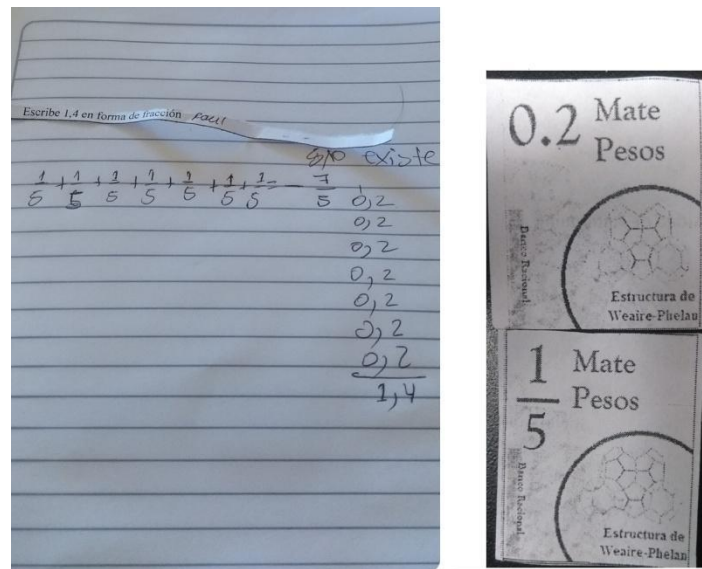 Escribe 1,4 en forma de fracción Paul
existe
1/5 + 1/5 + 1/5 + 1/5 + 1/5 + 1/5 + 1/5 = 7/5
0,2
0,2
0,2
0,2
0,2
0,2
0,2
1,4
0.2 Mate
Pesos
Banco Racional
Estructura de
Weaire-Phelan
1/5 Mate
Pesos
Banco Racional
Estructura de
Weaire-Phelan